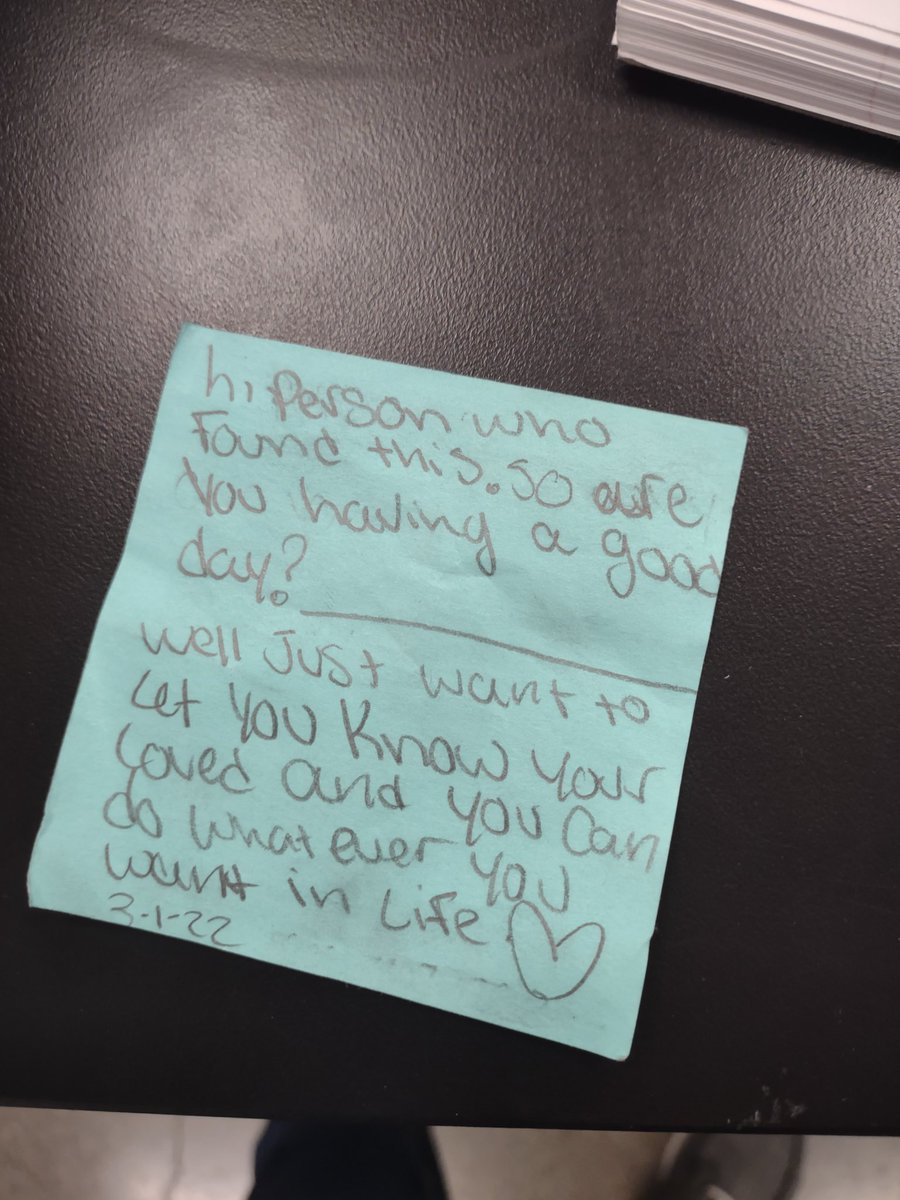 hi Person who
Found this. So are
You having a good
day?
well Just want to
Let YOU Know your
Loved and you Can
do what ever You
want in Life ♡
3-1-22